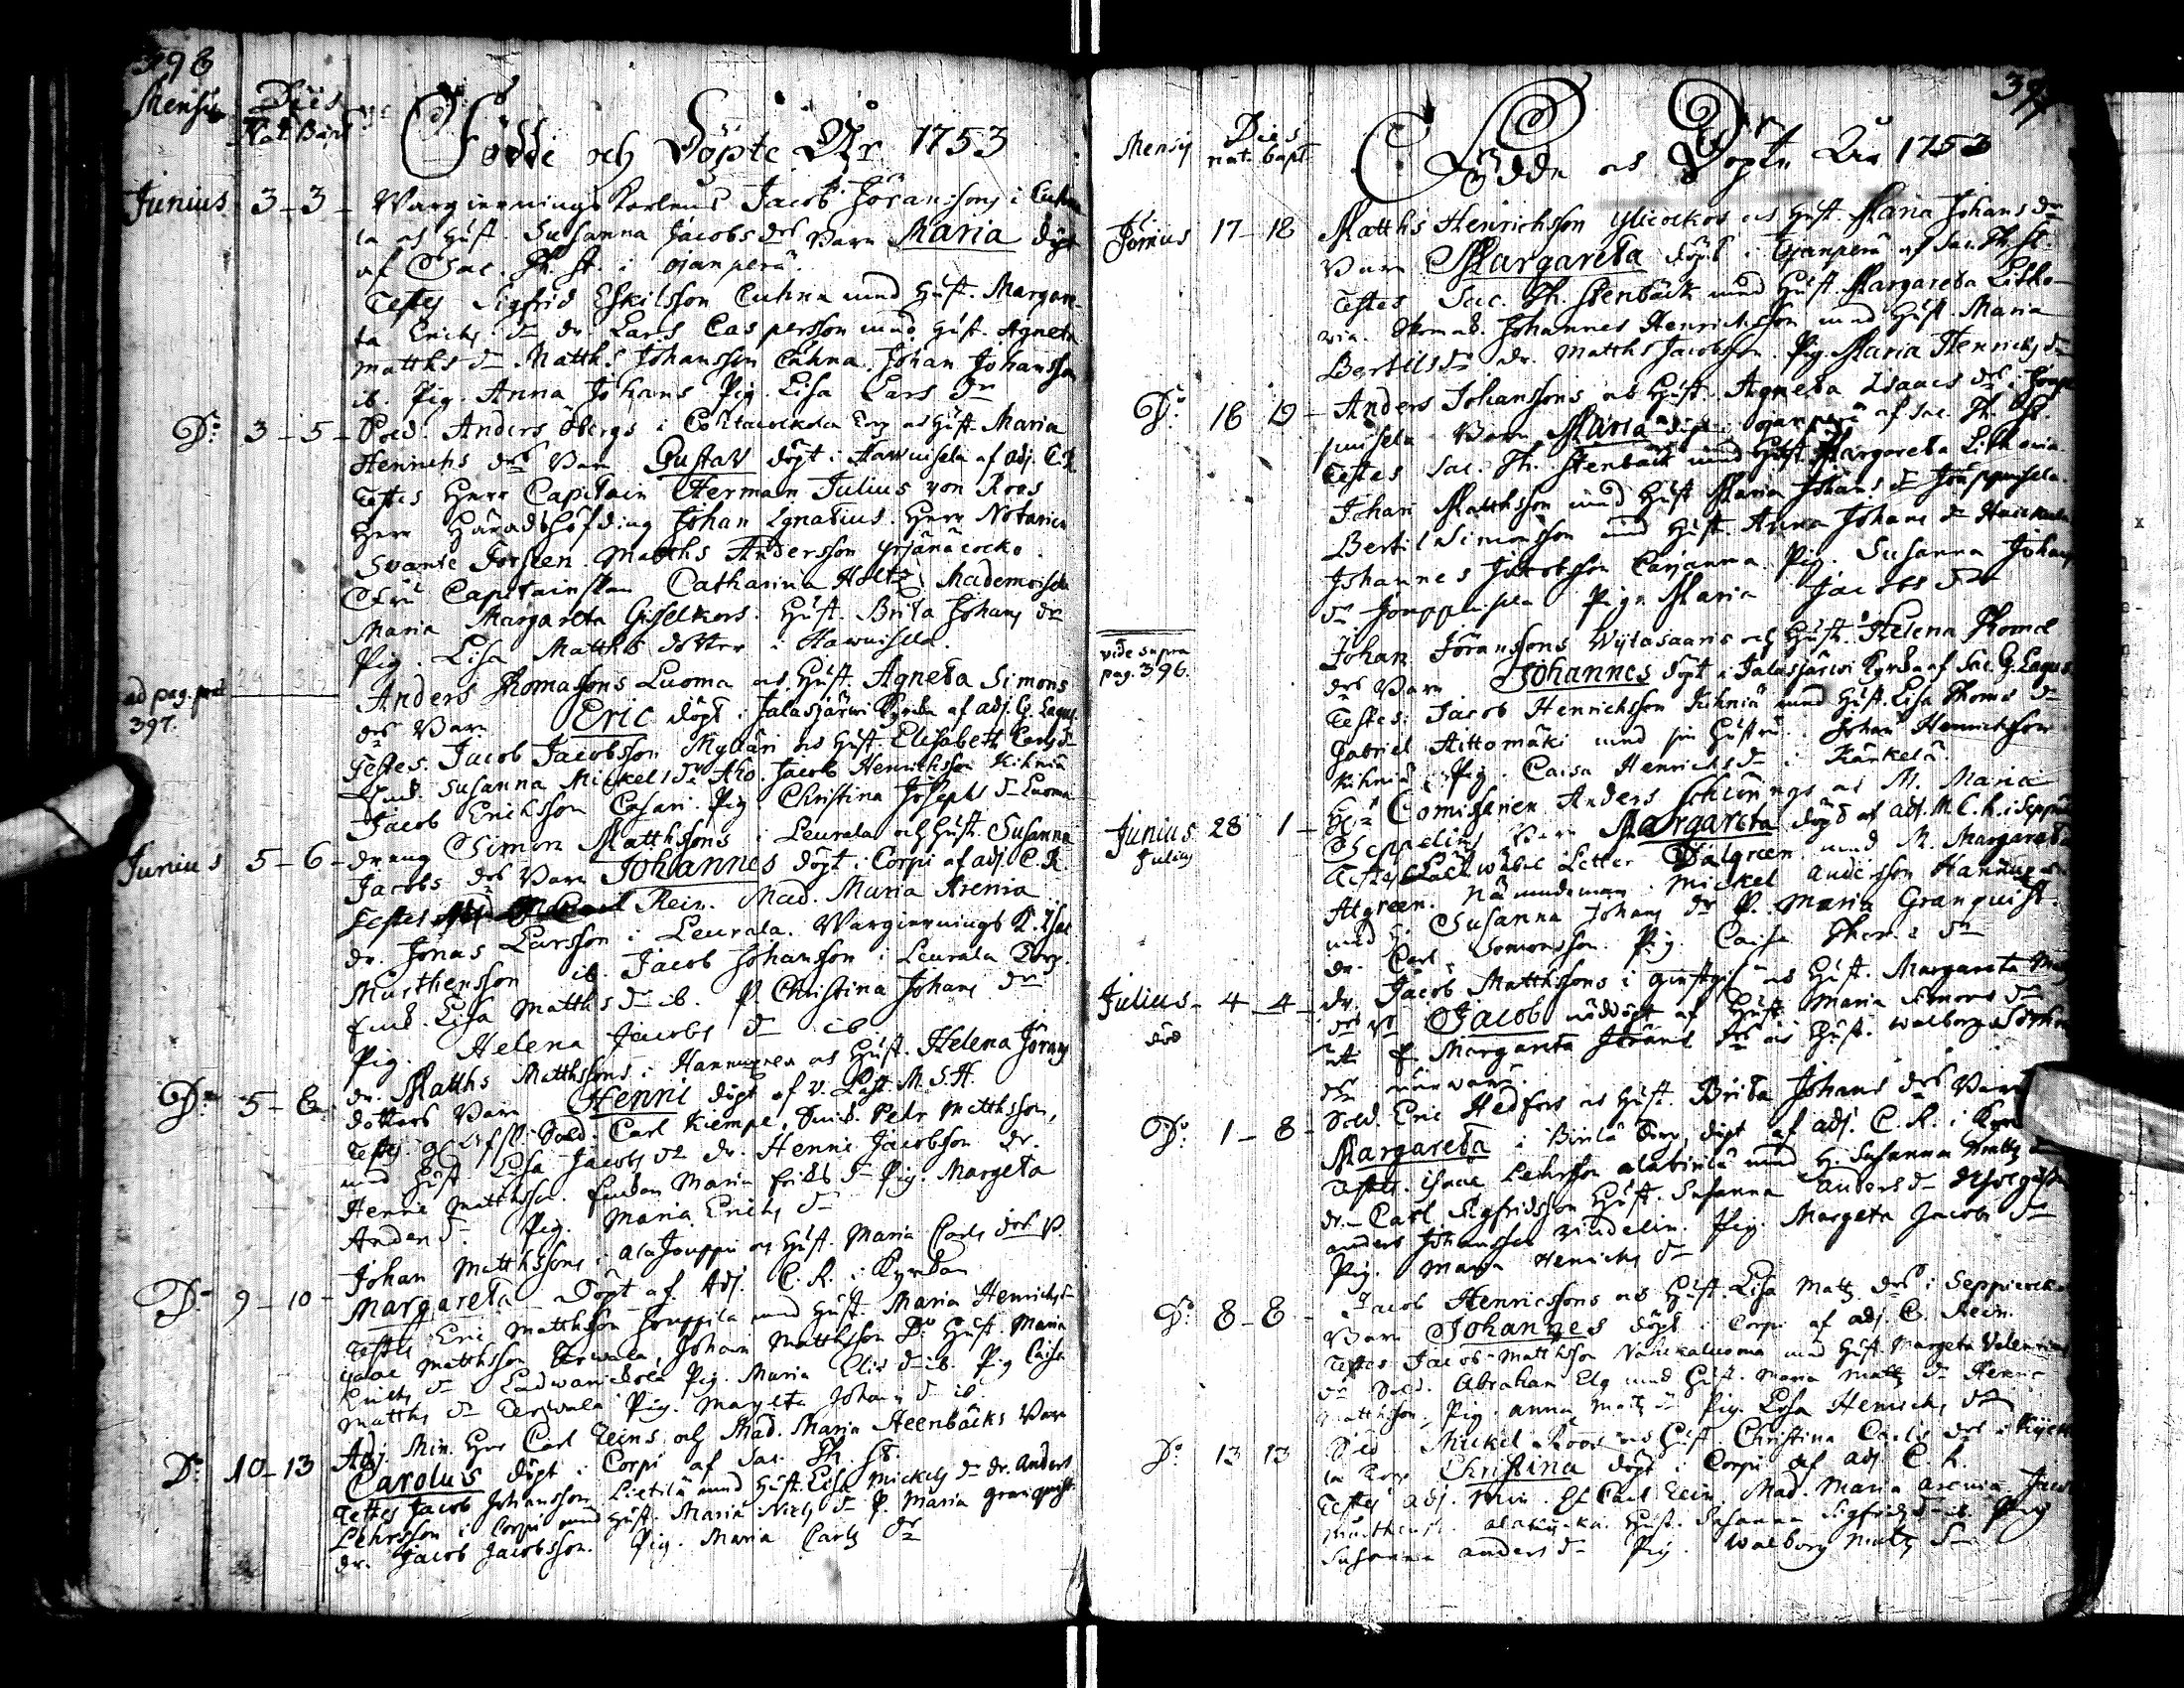 396
Mensis Dies
Nat. Bapt.
Födde och Döpte Åhr 1753
Junius 3-3- Wargierningskarlens Jacob Jöranssons i Cuhna
la os Hust. Susanna Jacobs drs Barn Maria döpt
af Sac. Th. St. i ojanperä.
Testes Sigfrid Eskilsson Cuhna med Hust. Margare-
ta Erichs dr dr. Lars Caspersson med Hust. Agneta
Matths dr Matths Johansson Cuhna Johan Johansson
ib. Pig. Anna Johans Pig. Lisa Lars dr
Do 3-5- Sold. Anders Öbergs i Torp os Hust. Maria
Henrichs drs Barn Gustav döpt i Hawuisela af adj. C. R.
Testes Herr Capitain Herman Julius von Roos
Herr Häradshöfding Johan Ignatius. Herr Notarien
Svante Forsteen. Matths Andersson
Fru Capitainskan Catharina Holtz Mademoiselle
Maria Margareta Gisselkors. Hust. Brita Johans dr
Pig. Lisa Matths dotter i Hawuisela.
ad pag. 397. Anders Thomassons Luoma os Hust. Agneta Simons
drs Barn Eric döpt i Jalasjärwi Kyrka af adj. G. Lagus.
Testes. Jacob Jacobsson Mylläri os Hust. Elisabeth Carls dr
Enk. Susanna Mickels dr Aho. Jacob Henrichsson Kihniä
Jacob Erichsson Casari. Pig. Christina Josephs dr Luoma
Junius 5-6- dreng Simon Matthssons i Leurala och Hust. Susanna
Jacobs drs Barn Johannes döpt i Corpi af adj. C. R.
Testes Rein. Mad. Maria Arenia
dr. Jonas Larsson i Leurala. Wargiernings K. Isac
Murthensson ib. Jacob Johansson i Leurala Torp.
Enk. Lisa Matths dr ib. P. Christina Johans dr
Pig. Helena Jacobs dr ib.
Do 5-6 dr. Matths Matthssons i Hannuxela os Hust. Helena Jörans
dotters Barn Henric döpt af v. Past. M. S. H.
Testes. Sold. Carl Kiempe, Smed. Petr Matthsson,
med Hust Lisa Jacobs dr dr. Henric Jacobsson dr.
Henric Matthsson. Enkan Maria Erichs dr Pig. Margeta
Anders dr. Pig. Maria Erichs dr
Do 9-10- Johan Matthssons i AlaJouppi os Hust. Maria Carls drs B.
Margareta döpt af Adj. C. R. i Kyrkan
Testes Eric Matthsson Jouppila med Hust. Maria Henrichs dr
Isaac Matthsson Terwala, Johan Matthsson Do Hust. Maria
Erichs dr Pig. Maria Elis dr ib. Pig Caisa
Matths dr Terwala Pig. Margeta Johans dr ib.
Do 10-13 Adj. Min. Her Carl Reins och Mad. Maria Steenbäcks Barn
Carolus döpt i Corpi af Sac. Th. St.
Testes Jacob Johansson Lietilä med Hust. Lisa Mickels dr dr. Anders
Lehrsson i Corpi med Hust. Maria Niels dr P. Maria Granquist
dr. Jacob Jacobsson. Pig. Maria Carls dr
397
Mensis Dies
nat. bapt.
Födde os Döpte Åhr 1753
Junius 17-18 Matths Henrichsson Ylicockos os Hust. Maria Johans dr
Barn Margareta döpt i Ojanperä af Sac. Th. St.
Testes Sac. Th. Stenbäck med Hust. Margareta Litho-
via. Skomak. Johannes Henrichsson med Hust. Maria
Bertils dr dr. Matths Jacobsson. Pig. Maria Henrichs dr
Do 18 19- Anders Johanssons os Hust. Agneta Isaacs drs i Joup-
puisela Barn Maria döpt i ojanperä af Sac. Th. St.
Testes Sac. Th. Stenbäck med Hust. Margareta Lithovia.
Johan Matthsson med Hust Maria Johans dr Jouppuisela.
Bertil Simonsson med Hust. Anna Johans dr
Johannes Jacobsson Carjanna. Pig. Susanna Johans
dr. Jouppuisela Pig. Maria Jacobs dr
vide supra pag. 396. Johan Jöranssons Wylasaaris och Hust. Helena Thomæ
drs Barn Johannes döpt i Jalasjärwi Kyrka af Sac. G. Lagus
Testes: Jacob Henrichsson Kihniä med Hust. Lisa Thomæ dr
Gabriel Aittomäki med sin Hustru. Johan Henrichsson
Kihniä. Pig. Caisa Henrichs dr i Känkelä.
Junius Julius 28 1- Hr Comissarien Anders Schörings os M. Maria
Cheppelius Barn Margareta döpt af adj. M. C. R. i Seppälä
Testes Petter Dalgreen med M. Margareta
Algreen. Nämndeman Mickel Andersson Hannuxela
med H. Susanna Johans dr P. Maria Granquist.
dr. Carl Simonsson. Pig. Caisa Thom. dr
Julius död 4-4- dr. Jacob Matthssons i os Hust. Margareta Matths
drs B. Jacob nöddöpt af Hust Maria Simons dr
uti E. Margareta Jörans drs os Hust. Walborg
dr närwaro.
Do 1-8- Sold. Eric Hedfors os Hust. Brita Johans drs Barn
Margareta i Birilä Torp, döpt af adj. C. R. i Kyrk
Testes. Isaac Lehrsson alabirilä med H. Susanna Matts dr
dr. Carl Sigfridsson Hust. Susanna Anders dr
Anders Johansson Rindelin. Pig. Margeta Jacobs dr
Pig. Maria Henrichs dr
Do 8-8- Jacob Henricssons os Hust. Lisa Matz drs i
Barn Johannes döpt i Corpi af adj. C. Rein.
Testes Jacob Matthsson Nahkaluoma med Hust. Margeta
dr Sold. Abraham Elg med Hust. Maria Matz dr Henric
Matthsson. Pig. Anna Matz dr Pig. Lisa Henrichs dr
Do 13 13 Sold Mickel Roos os Hust Christina Carls drs i
la Torp Christina döpt i Corpi af adj. C. R.
Testes adj. Min. Hr Carl Rein. Mad. Maria Arenia. Jacob
Murthens. Hust. Susanna Sigfrids dr ib. Pig
Susanna Anders dr Pig. Walborg Matz dr